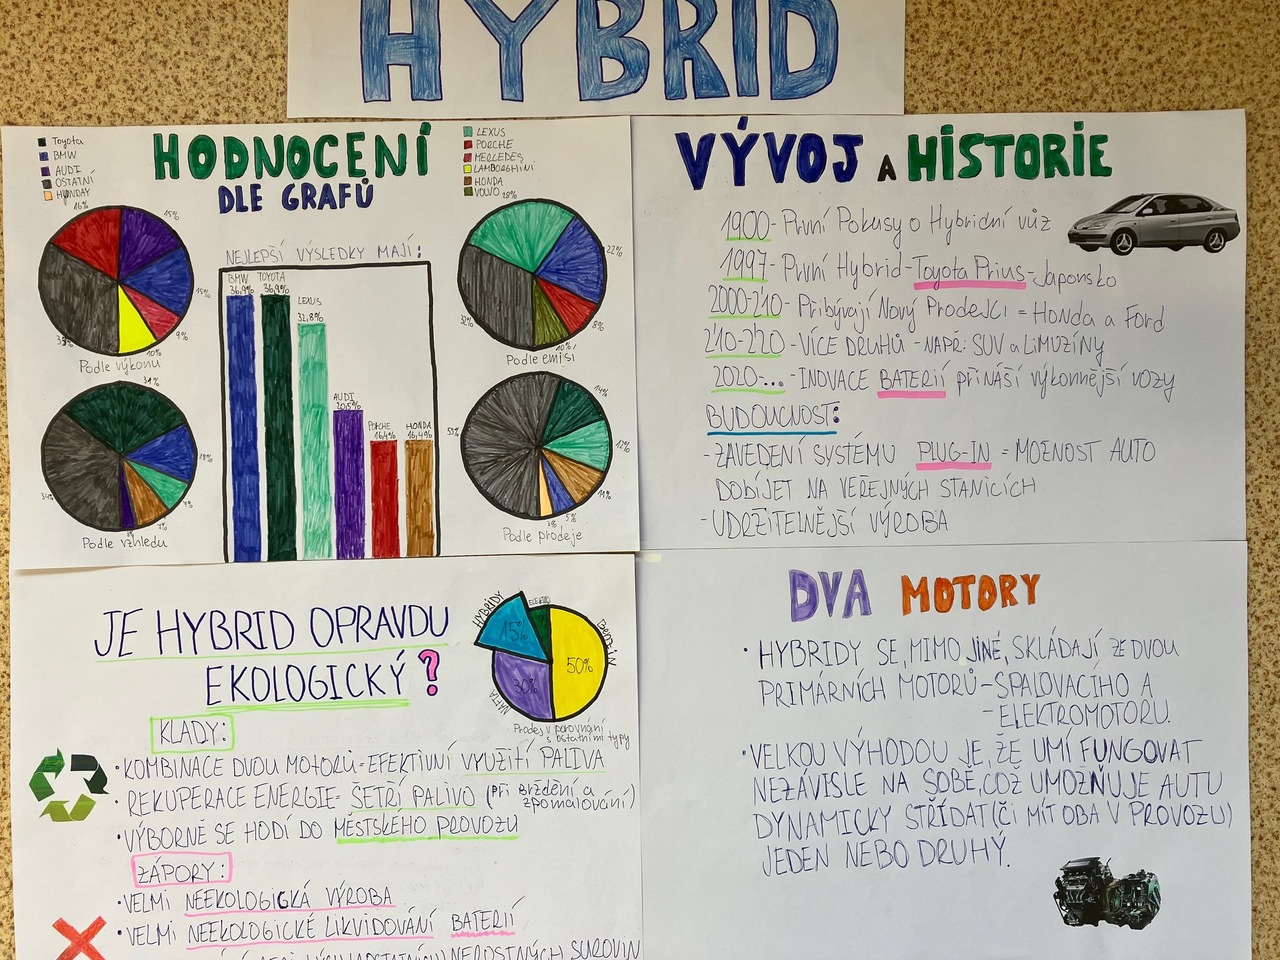 HYBRID
HODNOCENÍ
DLE GRAFŮ
Toyota
BMW
AUDI
OSTATNÍ
HYUNDAY
LEXUS
PORCHE
MERCEDES
LAMBORGHINI
HONDA
VOLVO
16%
15%
15%
9%
10%
Podle výkonu
28%
22%
8%
10%
32%
Podle emisí
NEJLEPŠÍ VÝSLEDKY MAJÍ:
BMW
36,9%
TOYOTA
36,9%
LEXUS
32,8%
AUDI
20,5%
PORCHE
16,4%
HONDA
16,4%
31%
18%
7%
7%
34%
Podle vzhledu
14%
12%
11%
5%
3%
Podle prodeje
VÝVOJ A HISTORIE
1900- První Pokusy o Hybridní vůz
1997- První Hybrid-Toyota Prius-Japonsko
2000-210- Přibývají Nový Prodejci = Honda a Ford
210-220- VÍCE DRUHŮ - NAPŘ: SUV a LiMUZÍNY
2020-... -INOVACE BATERIÍ přináší výkonnější vozy
BUDOUCNOST:
-ZAVEDENÍ SYSTÉMU PLUG-IN = MOŽNOST AUTO
DOBÍJET NA VEŘEJNÝCH STANICÍCH
-UDRŽITELNĚJŠÍ VÝROBA
JE HYBRID OPRAVDU
EKOLOGICKÝ?
HYBRIDY
15%
ELEKTRO
BENZÍN
50%
30%
NAFTA
Prodej v porovnání
s ostatními typy
KLADY:
•KOMBINACE DVOU MOTORŮ=EFEKTIVNÍ VYUŽITÍ PALIVA
•REKUPERACE ENERGIE= ŠETŘÍ PALIVO (při brždění a
zpomalování)
•VÝBORNĚ SE HODÍ DO MĚSTSKÉHO PROVOZU
ZÁPORY:
•VELMI NEEKOLOGICKÁ VÝROBA
•VELMI NEEKOLOGICKÉ LIKVIDOVÁNÍ BATERIÍ
NEROSTNÝCH SUROVIN
DVA MOTORY
• HYBRIDY SE, MIMO JINÉ, SKLÁDAJÍ ZE DVOU
PRIMÁRNÍCH MOTORŮ-SPALOVACÍHO A
-ELEKTROMOTORU.
•VELKOU VÝHODOU JE, ŽE UMÍ FUNGOVAT
NEZÁVISLE NA SOBĚ, COŽ UMOŽŇUJE AUTU
DYNAMICKY STŘÍDAT(ČI MÍT OBA V PROVOZU)
JEDEN NEBO DRUHÝ.